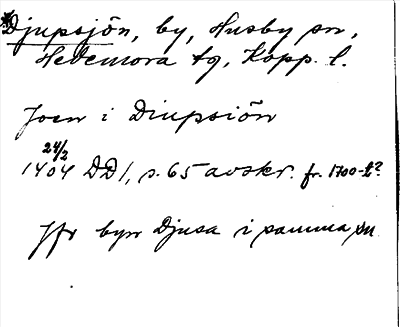 *Djupsjön, by, Husby sn,
Hedemora tg, Kopp. l.
Joen i Diupsiön
24/2
1404 DD1, s. 65 avskr. fr. 1700-t?
Jfr byn Djusa i samma sn